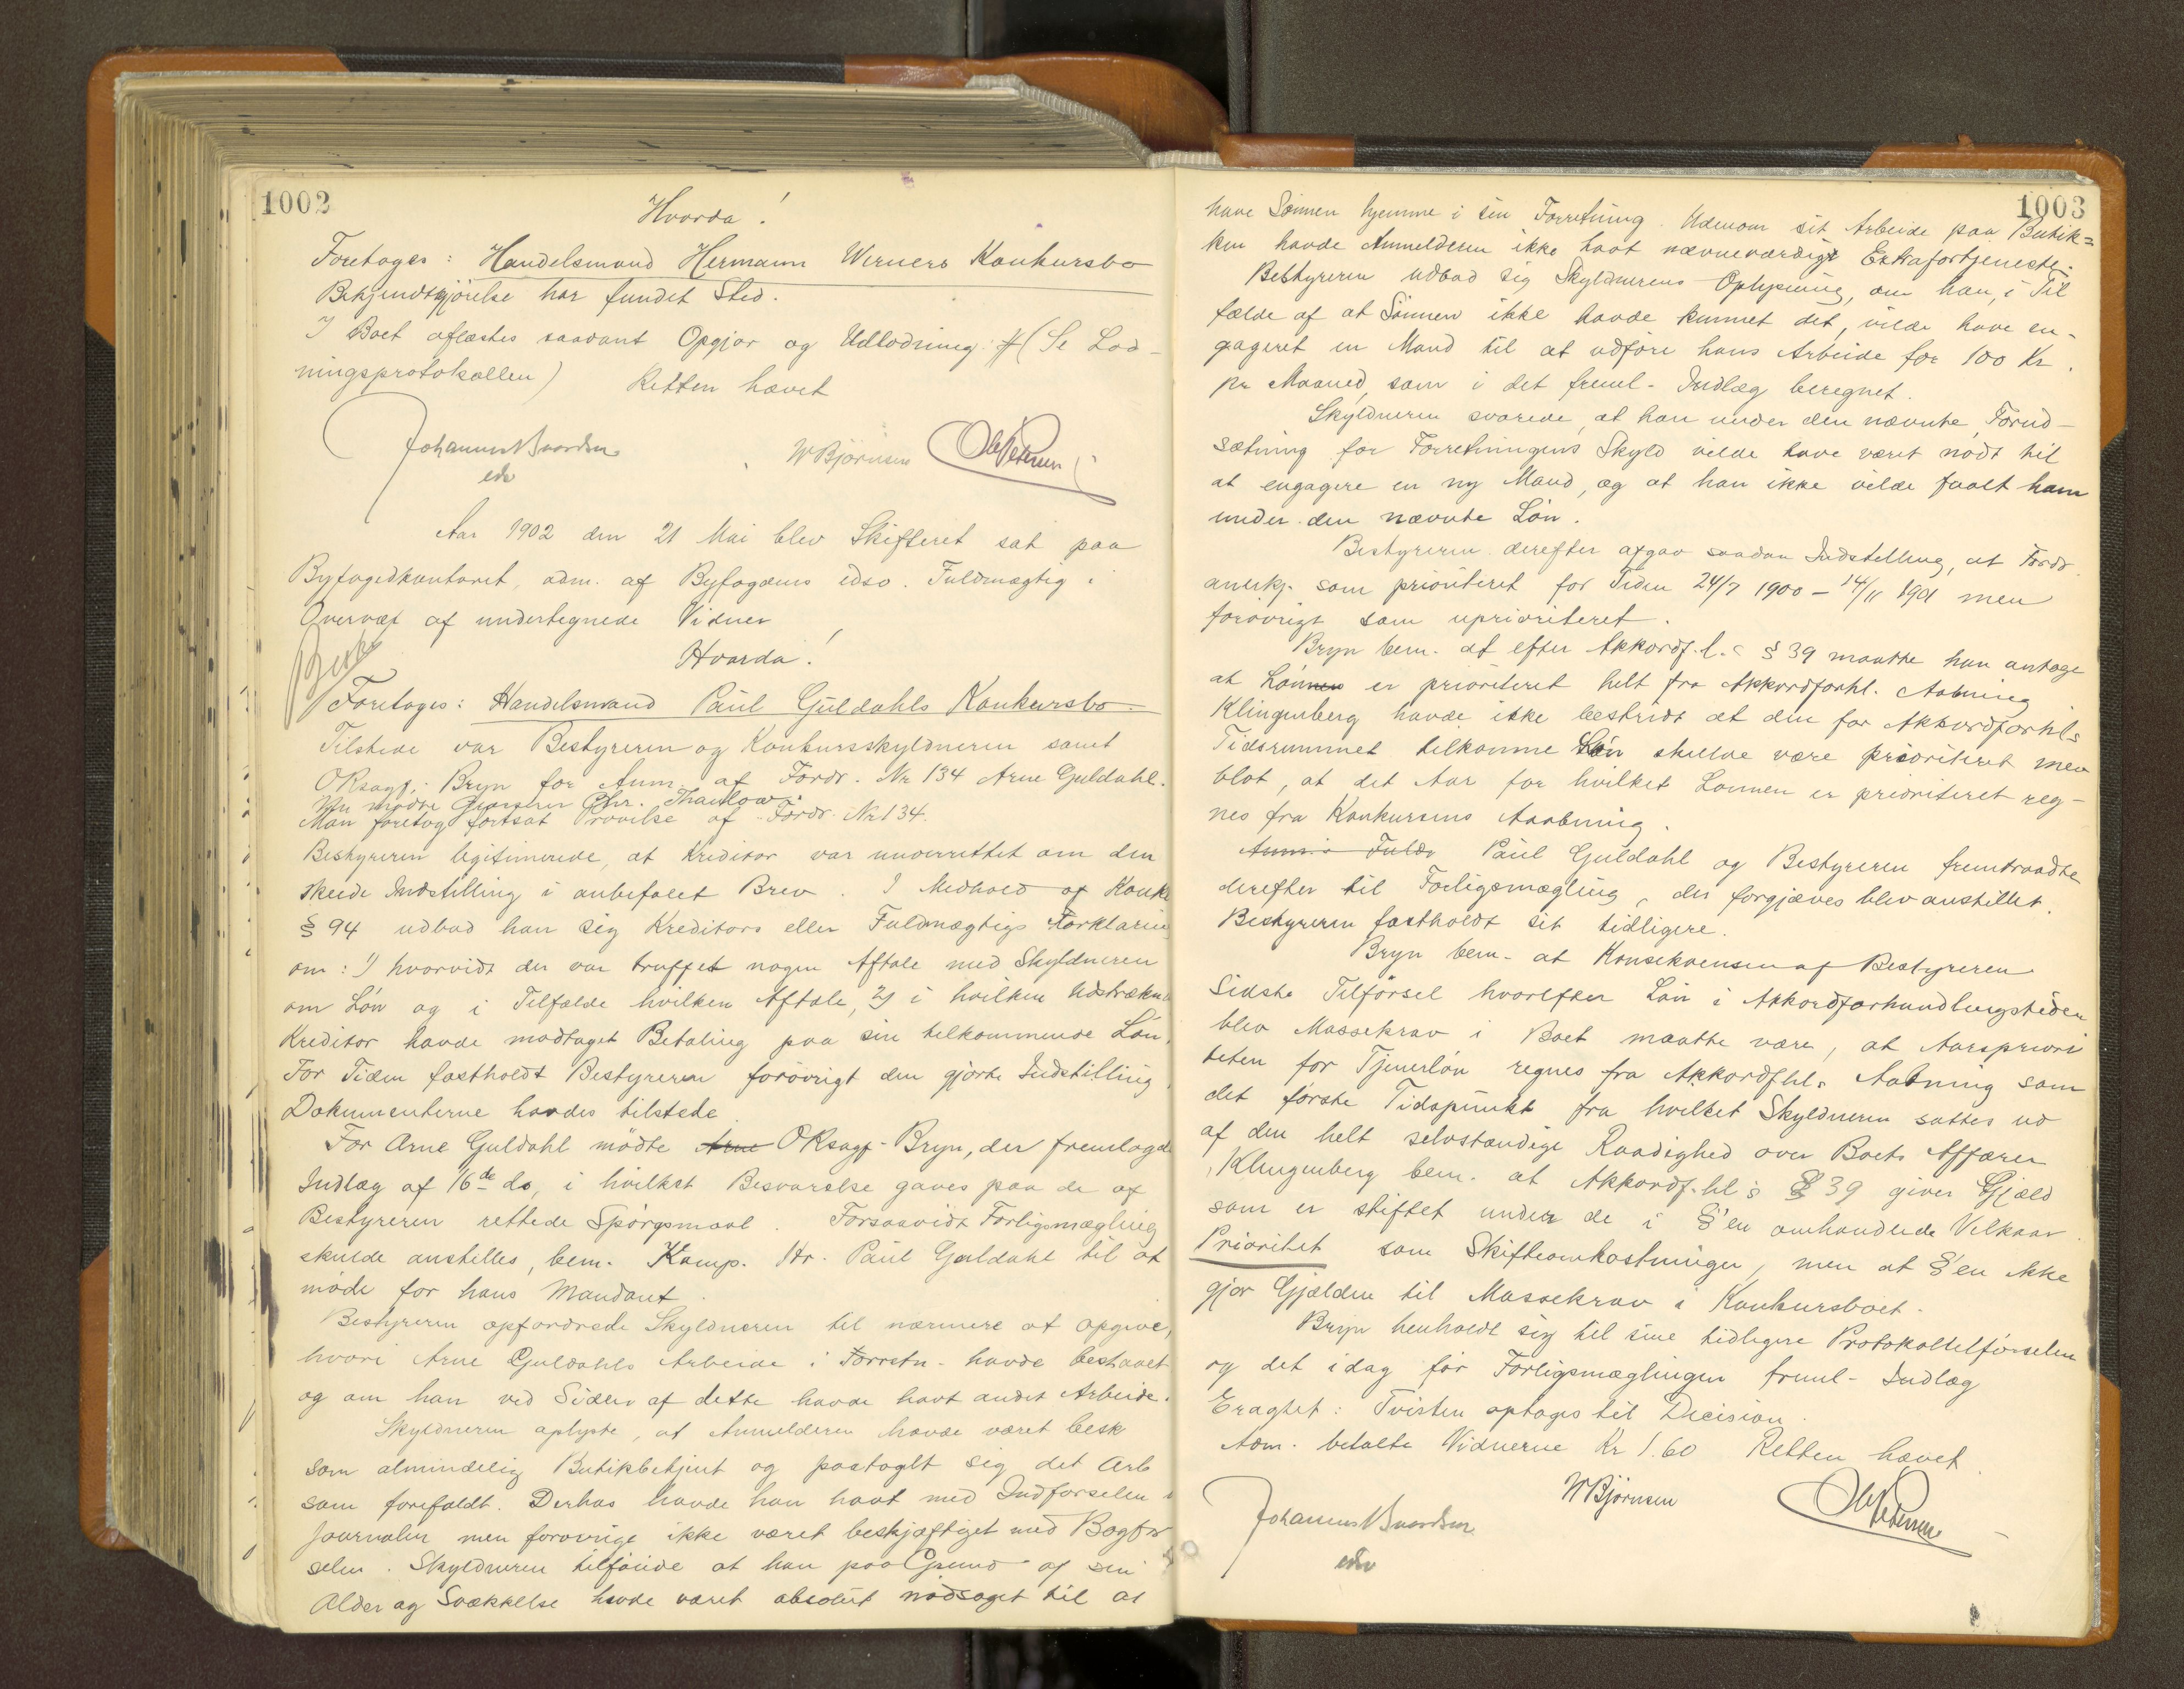 1002
Hvorda!
Foretoges: Handelsmand Hermann Werners Konkursbo
Bekjendtgjörelse har fundet Sted.
I Boet oflæstes saadant Opgjør og Udlodning # (Se Lod-
ningsprotokollen) Retten hævet
Johannes Svardsen W Björnsen Ole Petersen
eds
Aar 1902 den 21 Mai blev Skifteret sat paa
Byfogedkontoret, adm. af Byfogdens edsv. Fuldmægtig i
Overvær af undertegnede Vidner
Hvorda!
Foretoges: Handelsmand Paul Guldahls Konkursbo
Tilstede var Bestyreren og Konkursskyldneren samt
ORsagf. Bryn for Anm. af Fordr. Nr 134 Arne Guldahl.
Nu mødte Grosserer Chr. Thaulow.
Man foretog fortsat Prövelse af Fordr. Nr 134.
Bestyreren legitimerede, at Kreditor var underrettet om den
skede Indstilling i anbefalet Brev. I Medhold af Konk
§ 94 udbad han sig Kreditors eller Fuldmægtigs Forklaring
om: 1) hvorvidt der var truffet nogen Aftale med Skyldneren
om Lön og i Tilfælde hvilken Aftale, 2) i hvilken Udstrækn
Kreditor havde modtaget Betaling paa sin tilkommende Lön.
For Tiden fastholdt Bestyreren forövrigt den gjorte Indstilling.
Dokumenterne havdes tilstede
For Arne Guldahl mödte Arne ORsagf. Bryn, der fremlagde
Indlæg af 16de ds, i hvilket Besvarelse gaves paa de af
Bestyreren rettede Spörgsmaal. Forsaavidt Forligsmægling
skulde anstilles, bem. Komp. Hr. Paul Guldahl til at
möde for hans Mandant.
Bestyreren opfordrede Skyldneren til nærmere at opgive,
hvori Arne Guldahls Arbeide i Forretn. havde bestaaet
og om han ved Siden af dette havde havt andet Arbeide.
Skyldneren oplyste, at Anmelderen havde været besk
som almindelig Butikbetjent og paataget sig det Arb
som forefaldt. Derhos havde han havt med Indförselen i
Journalen men forövrigt ikke været beskjæftiget med Bogför
selen. Skyldneren tilföiede at han paa Grund af sin
Alder og Svækkelse havde været absolut nödsaget til at
1003
have Sönnen hjemme i sin Forretning. Udenom sit Arbeide paa Butik=
ken havde Anmelderen ikke havt nævneværdigt Extrafortjeneste.
Bestyreren udbad sig Skyldnerens Oplysning, om han, i Til
fælde af at Sönnen ikke havde kunnet det, vilde have en-
gageret en Mand til at udføre hans Arbeide for 100 Kr.
pr Maaned, som i det freml. Indlæg beregnet.
Skyldneren svarede, at han under den nævnte Forud-
sætning for Forretningens Skyld vilde have været nödt til
at engagere en ny Mand, og at han ikke vilde faaet ham
under den nævnte Lön.
Bestyreren derefter afgav saadan Indstilling, at Fordr.
anerkj. som prioriteret for Tiden 24/7 1900 - 14/11 1901 men
forövrigt som uprioriteret.
Bryn bem. at efter Akkordf.l.s § 39 maatte han antage
at Lönnen er prioriteret helt fra Akkordforhl. Aabning
Klingenberg havde ikke bestridt at den for Akkordforhl.s
Tidsrummet tilkomne Lön skulde være prioriteret men
blot, at det Aar for hvilket Lönnen er prioriteret reg-
nes fra Konkursens Aabning.
Anm.s Fuldm Paul Guldahl og Bestyreren fremtraadte
derefter til Forligsmægling, der forgjæves blev anstillet.
Bestyreren fastholdt sit tidligere.
Bryn bem. at Konsekvensen af Bestyreren
Sidste Tilförsel hvorefter Lön i Akkordforhandlingstiden
blev Massekrav i Boet maatte være, at Aarspriori
teten for Tjenerlön regnes fra Akkordfhl.s Aabning som
det förste Tidspunkt fra hvilket Skyldneren sattes ud
af den helt selvstændige Raadighed over Boets Affærer
Klingenberg bem. at Akkordf.hl.s § 39 giver Gjæld
som er stiftet under de i §'en omhandlede Vilkaar
Prioritet som Skifteomkostninger, men at §'en ikke
gjör Gjælden til Massekrav i Konkursboet.
Bryn henholdt sig til sine tidligere Protokoltilförselen
og det idag för Forligsmæglingen freml. Indlæg
Eragtet: Tvisten optages til Decision.
Adm. betalte Vidnerne Kr 1.60 Retten hævet
Johannes Svardsen W Björnsen Ole Petersen
edsv